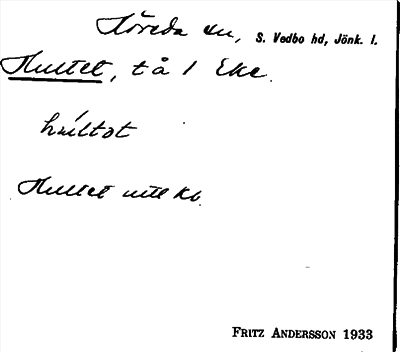 Höreda sn, S. Vedbo hd, Jönk. l.
Hultet, tå 1 Eke.
hu̍ltǝt
Hultet utt kb.
FRITZ ANDERSSON 1933